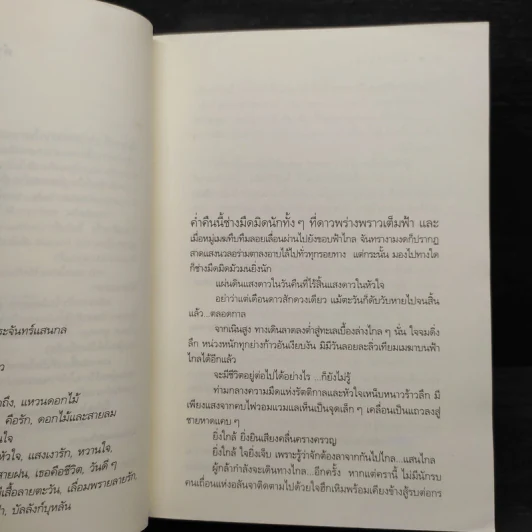 ระจันทร์แสนกล
าถึง, แหวนดอกไม้
คือรัก, ดอกไม้และสายลม
นใจ
หัวใจ, แสงเงารัก, หวานใจ,
สายฝน, เธอคือชีวิต, วันดี ๆ
เสื้อลายตะวัน, เลื่อมพรายลายรัก,
า, บัลลังก์บุหลัน
ค่ำคืนนี้ช่างมืดมิดนักทั้ง ๆ ที่ดาวพร่างพราวเต็มฟ้า และ
เมื่อหมู่เมฆทึบทึมลอยเลื่อนผ่านไปยังขอบฟ้าไกล จันทรางามงดก็ปรากฏ
สาดแสงนวลอร่ามตาลงอาบไล้ไปทั่วทุกรอยทาง แต่กระนั้น มองไปทางใด
ก็ช่างมืดมิดมัวมนยิ่งนัก
แผ่นดินแสงดาวในวันคืนที่ไร้สิ้นแสงดาวในหัวใจ
อย่าว่าแต่เดือนดาวสักดวงเดียว แม้ตะวันก็ดับวับหายไปจนสิ้น
แล้ว...ตลอดกาล
จากเนินสูง ทางเดินลาดลงต่ำสู่ทะเลเบื้องล่างไกล ๆ นั่น ใจจมดิ่ง
ลึก หน่วงหนักทุกย่างก้าวอันเงียบงัน มิมีวันลอยละลิ่วเทียมเมฆาบนฟ้า
ไกลได้อีกแล้ว
จะมีชีวิตอยู่ต่อไปได้อย่างไร ...ก็ยังไม่รู้
ท่ามกลางความมืดแห่งรัตติกาลและหัวใจเหน็บหนาวร้าวลึก มี
เพียงแสงจากคบไฟวอมแวมแลเห็นเป็นจุดเล็ก ๆ เคลื่อนเป็นแถวลงสู่
ชายหาดแคบ ๆ
ยิ่งใกล้ ยิ่งยินเสียงคลื่นครางครวญ
ยิ่งใกล้ ใจยิ่งเจ็บ เพราะรู้ว่าจักต้องลาจากกันไปไกล...แสนไกล
ผู้กล้ากำลังจะเดินทางไกล...อีกครั้ง หากแต่ครานี้ ไม่มีนักรบ
คนเถื่อนแห่งอลันจาติดตามไปด้วยใจฮึกเหิมพร้อมเคียงข้างสู้รบต่อกร